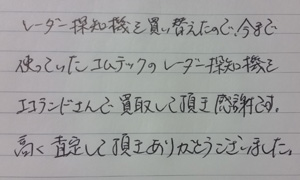 レーダー探知機を買い替えたので、今まで
使っていたコムテックのレーダー探知機を
エコランドさんで買取して頂き感謝です。
高く査定して頂きありがとうございました。